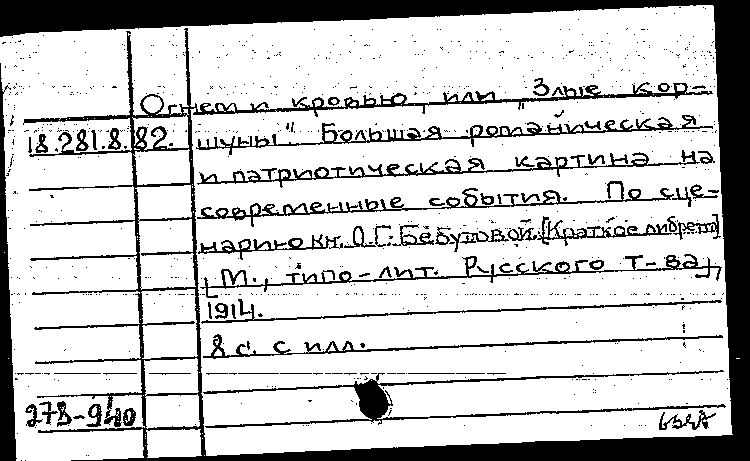 Огнем и кровью, или „Злые кор-
18.281.8.82. шуны". Большая романическая
и патриотическая картина на
современные события. По сце-
нарию кн. О.Г. Бебутовой. [Краткое либретто]
[М., типо-лит. Русского т-ва],
1914.
8 с. с илл.
278-940